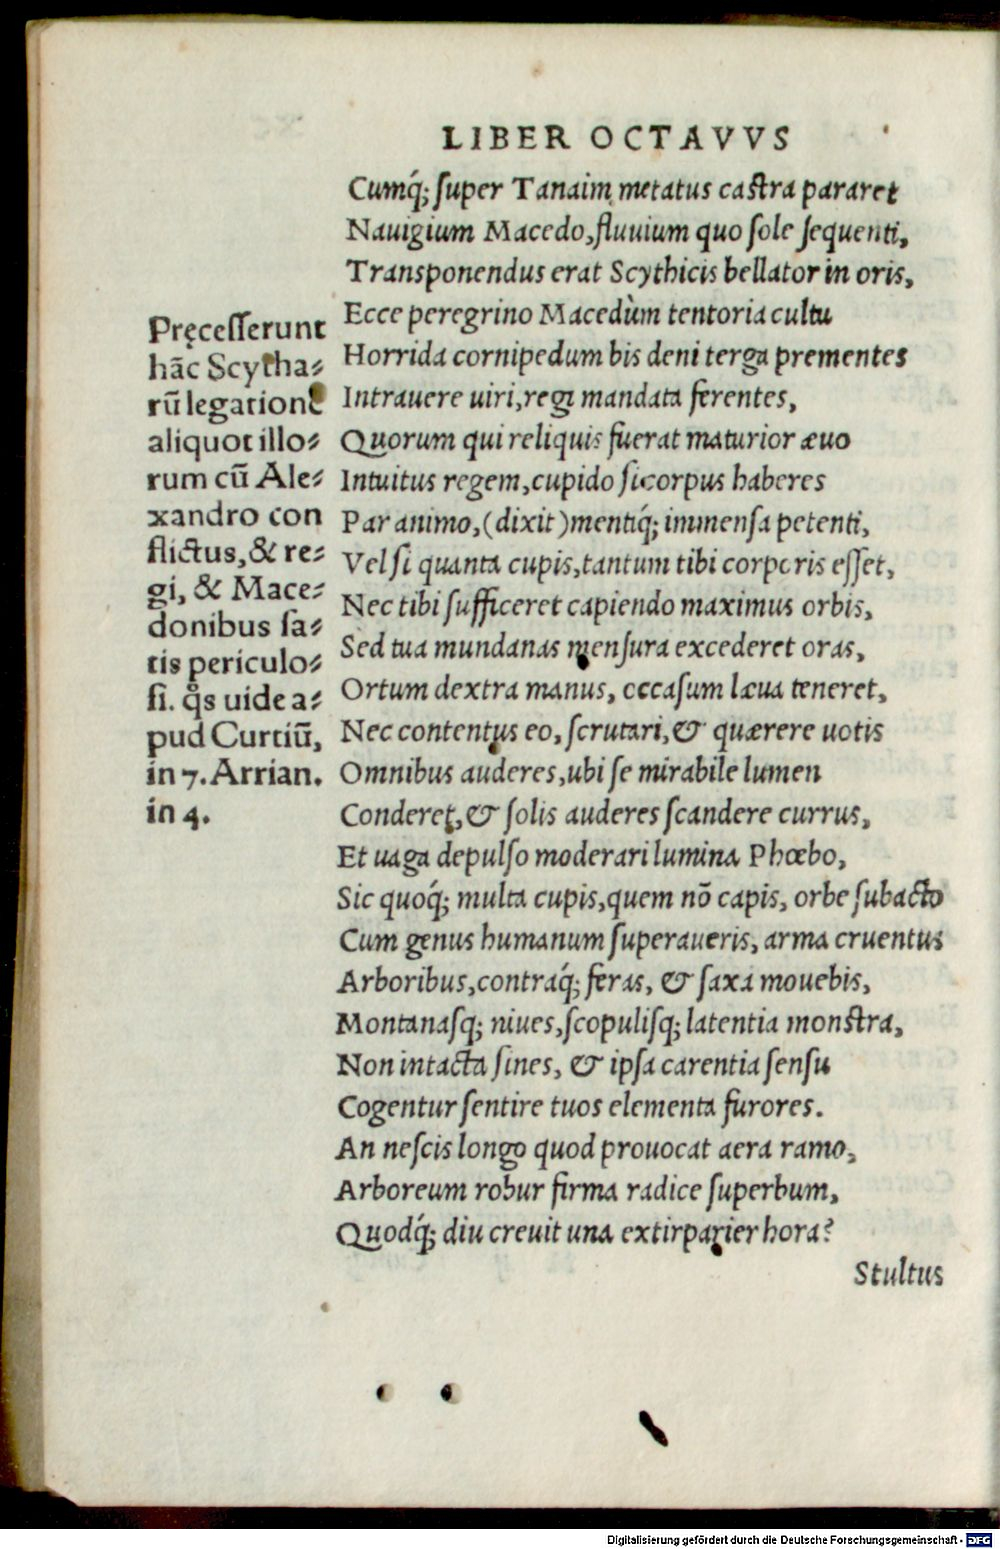 LIBER OCTAVVS
Cumq́; ſuper Tanaim metatus caſtra pararet
Nauigium Macedo, fluuium quo ſole ſequenti,
Transponendus erat Scythicis bellator in oris,
Ecce peregrino Macedùm tentoria cultu
Horrida cornipedum bis deni terga prementes
Intrauere uiri, regi mandata ferentes,
Quorum qui reliquis fuerat maturior æuo
Intuitus regem, cupido ſi corpus haberes
Par animo, (dixit) mentiq́; immenſa petenti,
Vel ſi quanta cupis, tantum tibi corporis eſſet,
Nec tibi ſufficeret capiendo maximus orbis,
Sed tua mundanas menſura excederet oras,
Ortum dextra manus, occaſum læua teneret,
Nec contentus eo, ſcrutari, & quærere uotis
Omnibus auderes, ubi ſe mirabile lumen
Conderet, & ſolis auderes ſcandere currus,
Et uaga depulſo moderari lumina Phœbo,
Sic quoq́; multa cupis, quem nõ capis, orbe ſubacto
Cum genus humanum ſuperaueris, arma cruentus
Arboribus, contraq́; feras, & ſaxa mouebis,
Montanaſq; niues, ſcopuliſq; latentia monſtra,
Non intacta ſines, & ipſa carentia ſenſu
Cogentur ſentire tuos elementa furores.
An neſcis longo quod prouocat aera ramo,
Arboreum robur firma radice ſuperbum,
Quodq́; diu creuit una extirparier hora?
Stultus
Pręceſſerunt
hãc Scytha⸗
rũ legatione
aliquot illo⸗
rum cũ Ale⸗
xandro con
flictus, & re⸗
gi, & Mace⸗
donibus ſa⸗
tis periculo⸗
ſi. q̊s uide a⸗
pud Curtiũ,
in 7. Arrian.
in 4.
Digitalisierung gefördert durch die Deutsche Forschungsgemeinschaft - DFG